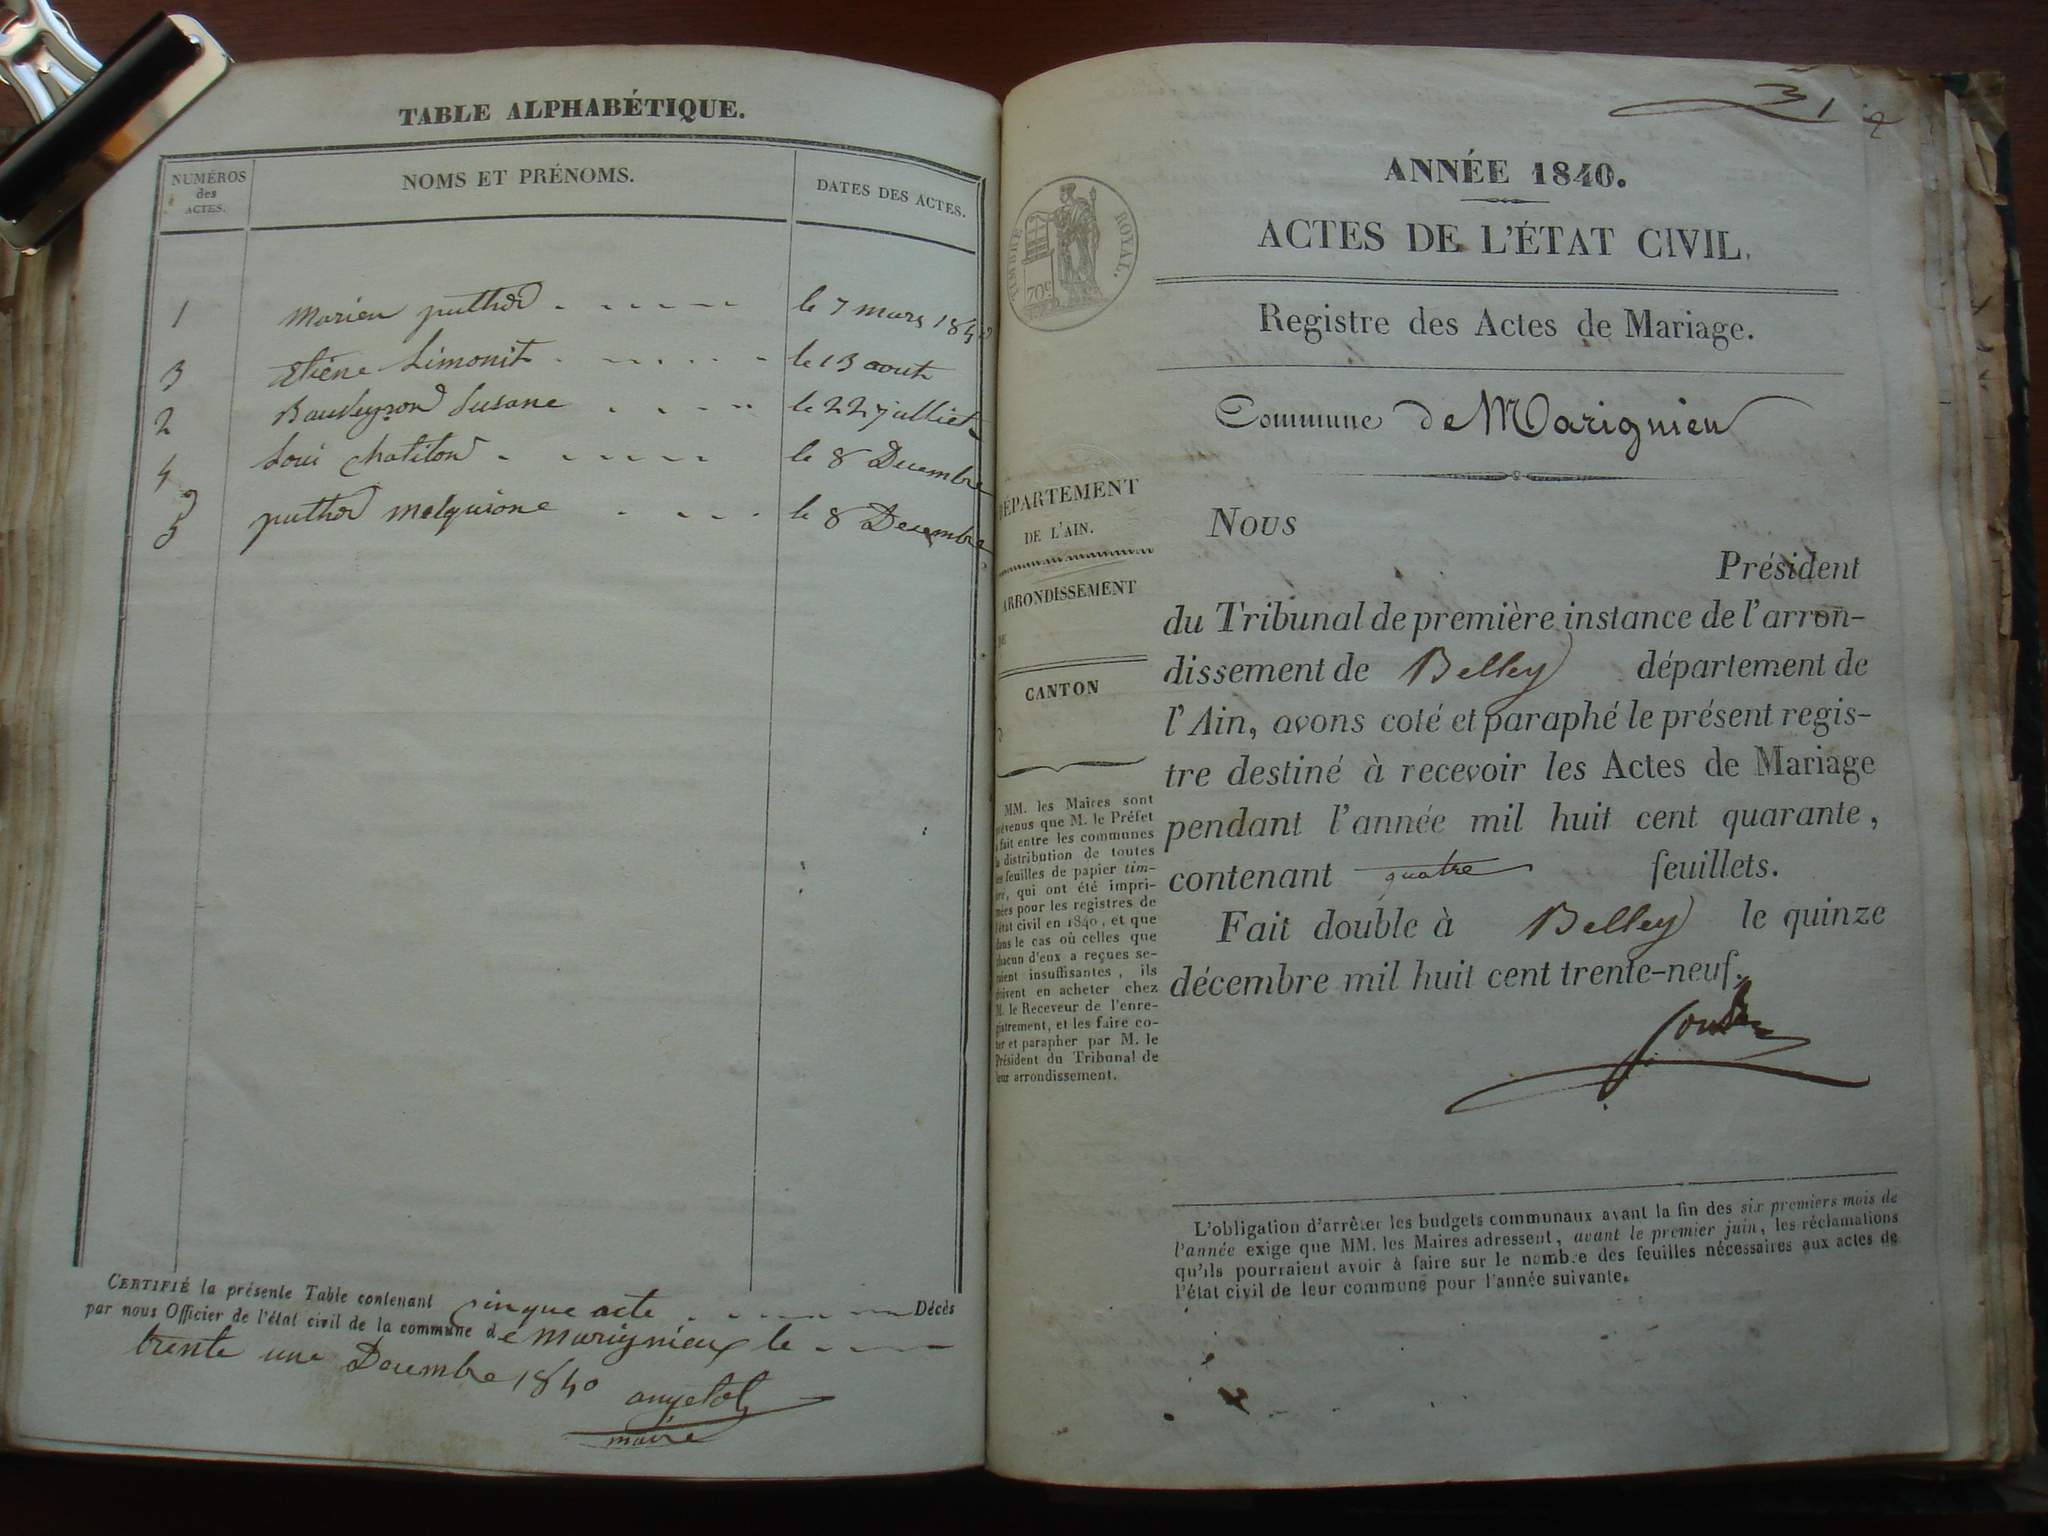 TABLE ALPHABÉTIQUE.
NUMÉROS
des
ACTES.
NOMS ET PRÉNOMS.
DATES DES ACTES.
1 Marien puthod le 7 mars 1840
3 Etiene Simonit le 13 aout
2 Baudeyron Susane le 22 julliet
4 Loui Chatilon le 8 Decembre
5 puthod melquione le 8 Decembre
CERTIFIÉ la présente Table contenant cinque acte Décès
par nous Officier de l'état civil de la commune de Marignieux le
trente une Decembre 1840
angelot
maire
TIMBRE ROYAL.
70c
DÉPARTEMENT
DE L'AIN.
ARRONDISSEMENT
DE
CANTON
D
MM. les Maires sont
prévenus que M. le Préfet
a fait entre les communes
la distribution de toutes
les feuilles de papier tim-
bré, qui ont été impri-
mées pour les registres de
l'état civil en 1840, et que
dans le cas où celles que
chacun d'eux a reçues se-
raient insuffisantes, ils
doivent en acheter chez
M. le Receveur de l'enre-
gistrement, et les faire co-
ter et parapher par M. le
Président du Tribunal de
leur arrondissement.
ANNÉE 1840.
ACTES DE L'ÉTAT CIVIL.
Registre des Actes de Mariage.
Commune de Marignieu
Nous
Président
du Tribunal de première instance de l'arron-
dissement de Belley département de
l'Ain, avons coté et paraphé le présent regis-
tre destiné à recevoir les Actes de Mariage
pendant l'année mil huit cent quarante,
contenant quatre feuillets.
Fait double à Belley le quinze
décembre mil huit cent trente-neuf.
L'obligation d'arrêter les budgets communaux avant la fin des six premiers mois de
l'année exige que MM. les Maires adressent, avant le premier juin, les réclamations
qu'ils pourraient avoir à faire sur le nombre des feuilles nécessaires aux actes de
l'état civil de leur commune pour l'année suivante.